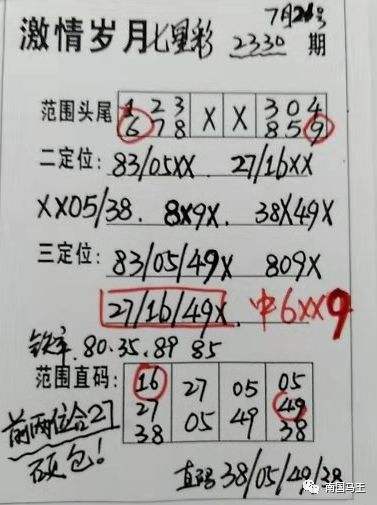 7月21号
激情岁月七星彩 2330 期
范围头尾 1 2 3 X X 3 0 4
6 7 8 8 5 9
二定位: 83/05XX 27/16XX
XX05/38. 8X9X. 38X49X
三定位: 83/05/49X 809X
27/16/49X. 中6XX9
铁率. 80.35.89 85
范围直码: 16 27 05 05
27 05 49 49
38 38
前两位合27
硕包!
直码 38/05/49/38
南国马王